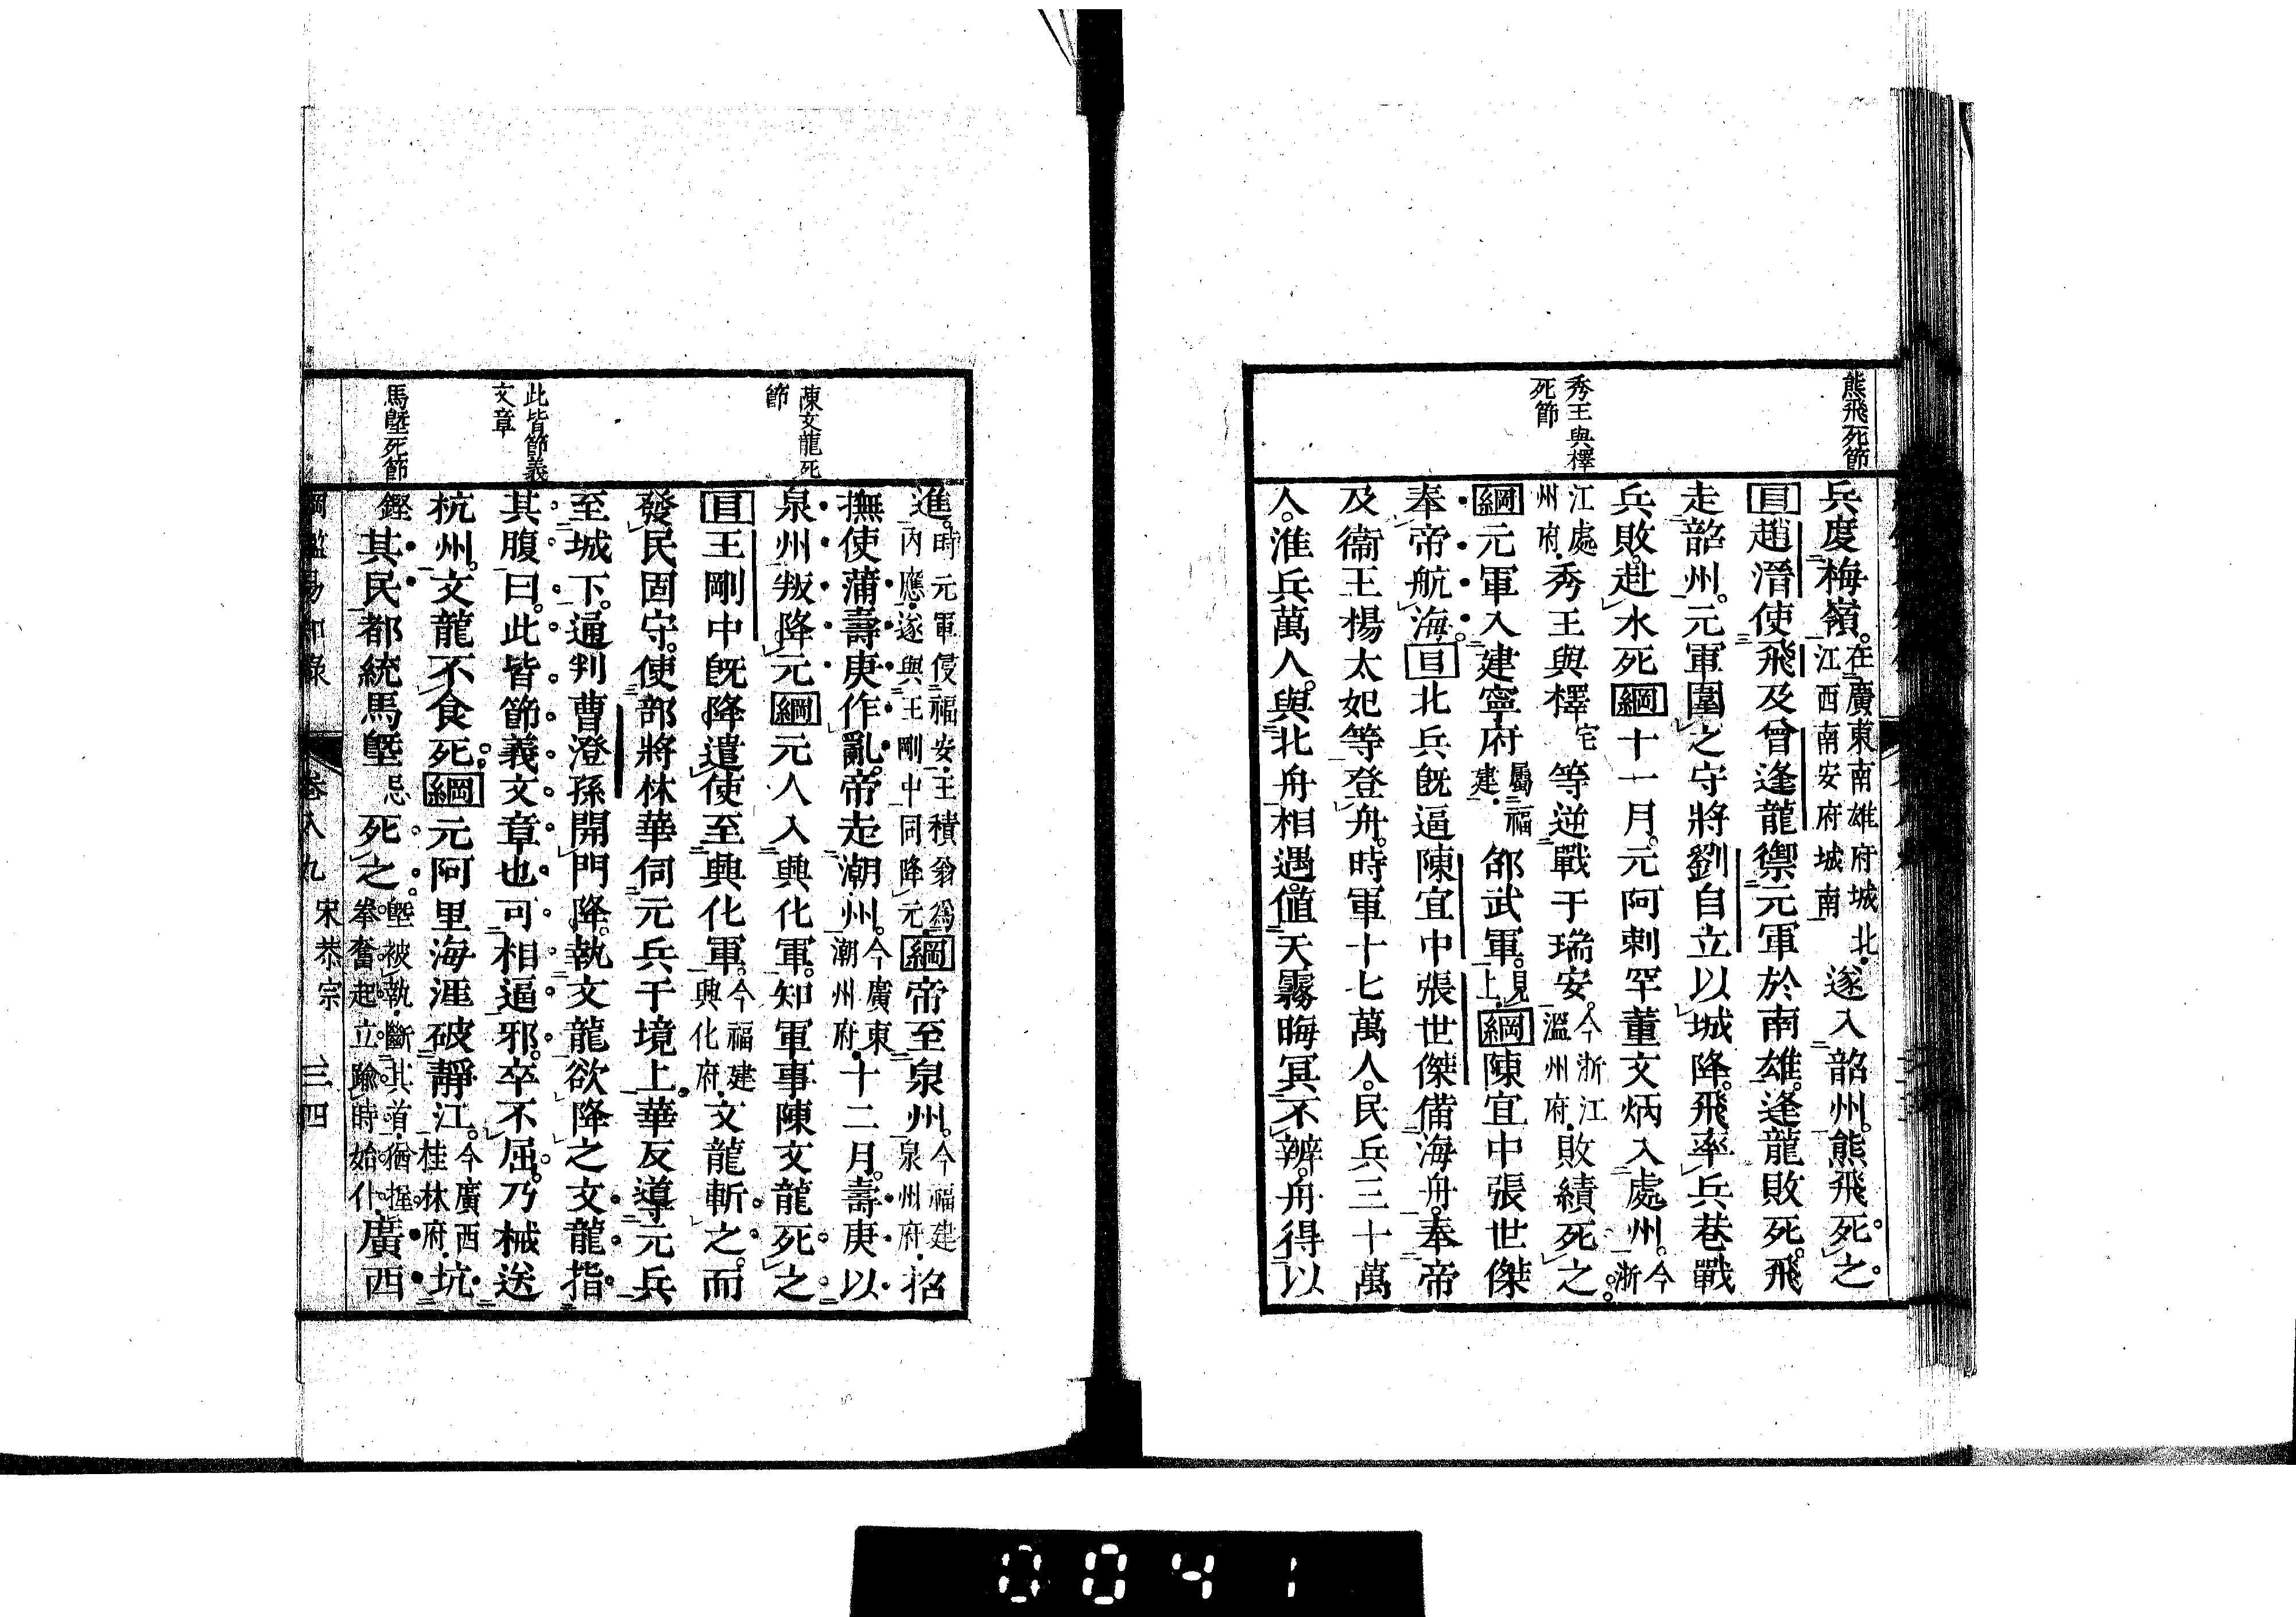 熊飛死節
秀王與檡
死節
兵度梅嶺。在廣東南雄府城北。江西南安府城南遂入韶州。熊飛死之。
目趙溍使飛及曾逢龍禦元軍於南雄。逢龍敗死。飛
走韶州。元軍圍之守將劉自立以城降。飛率兵巷戰
兵敗。赴水死綱十一月。元阿剌罕董文炳入處州。今浙
江處州府。秀王與檡宅等逆戰于瑞安。今浙江溫州府。敗績死之。
綱元軍入建寧府屬福建。邵武軍。見上。綱陳宜中張世傑
奉帝航海。目北兵既逼陳宜中張世傑備海舟。奉帝
及衞王楊太妃等登舟。時軍十七萬人。民兵三十萬
人。淮兵萬人。與北舟相遇。值天霧晦冥不辨。舟得以
陳文龍死
節
此皆節義
文章
馬塈死節
進。時元軍侵福安。王積翁爲內應。遂與王剛中同降元綱帝至泉州。今福建泉州府。招
撫使蒲壽庚作亂。帝走潮州。今廣東潮州府。十二月。壽庚以
泉州叛降元綱元人入興化軍。知軍事陳文龍死之
目王剛中既降。遣使至興化軍。今福建興化府。文龍斬之。而
發民固守。使部將林華伺元兵于境上。華反導元兵
至城下。通判曹澄孫開門降。執文龍欲降之文龍指
其腹曰。此皆節義文章也可相逼邪。卒不屈。乃械送
杭州。文龍不食死。綱元阿里海涯破靜江。今廣西桂林府。坑
鏗其民都統馬塈忌死之。塈被執。斷其首。猶握拳奮起立。踰時始仆。廣西
綱鑑易知錄 卷八九 宋恭宗 三四
0041